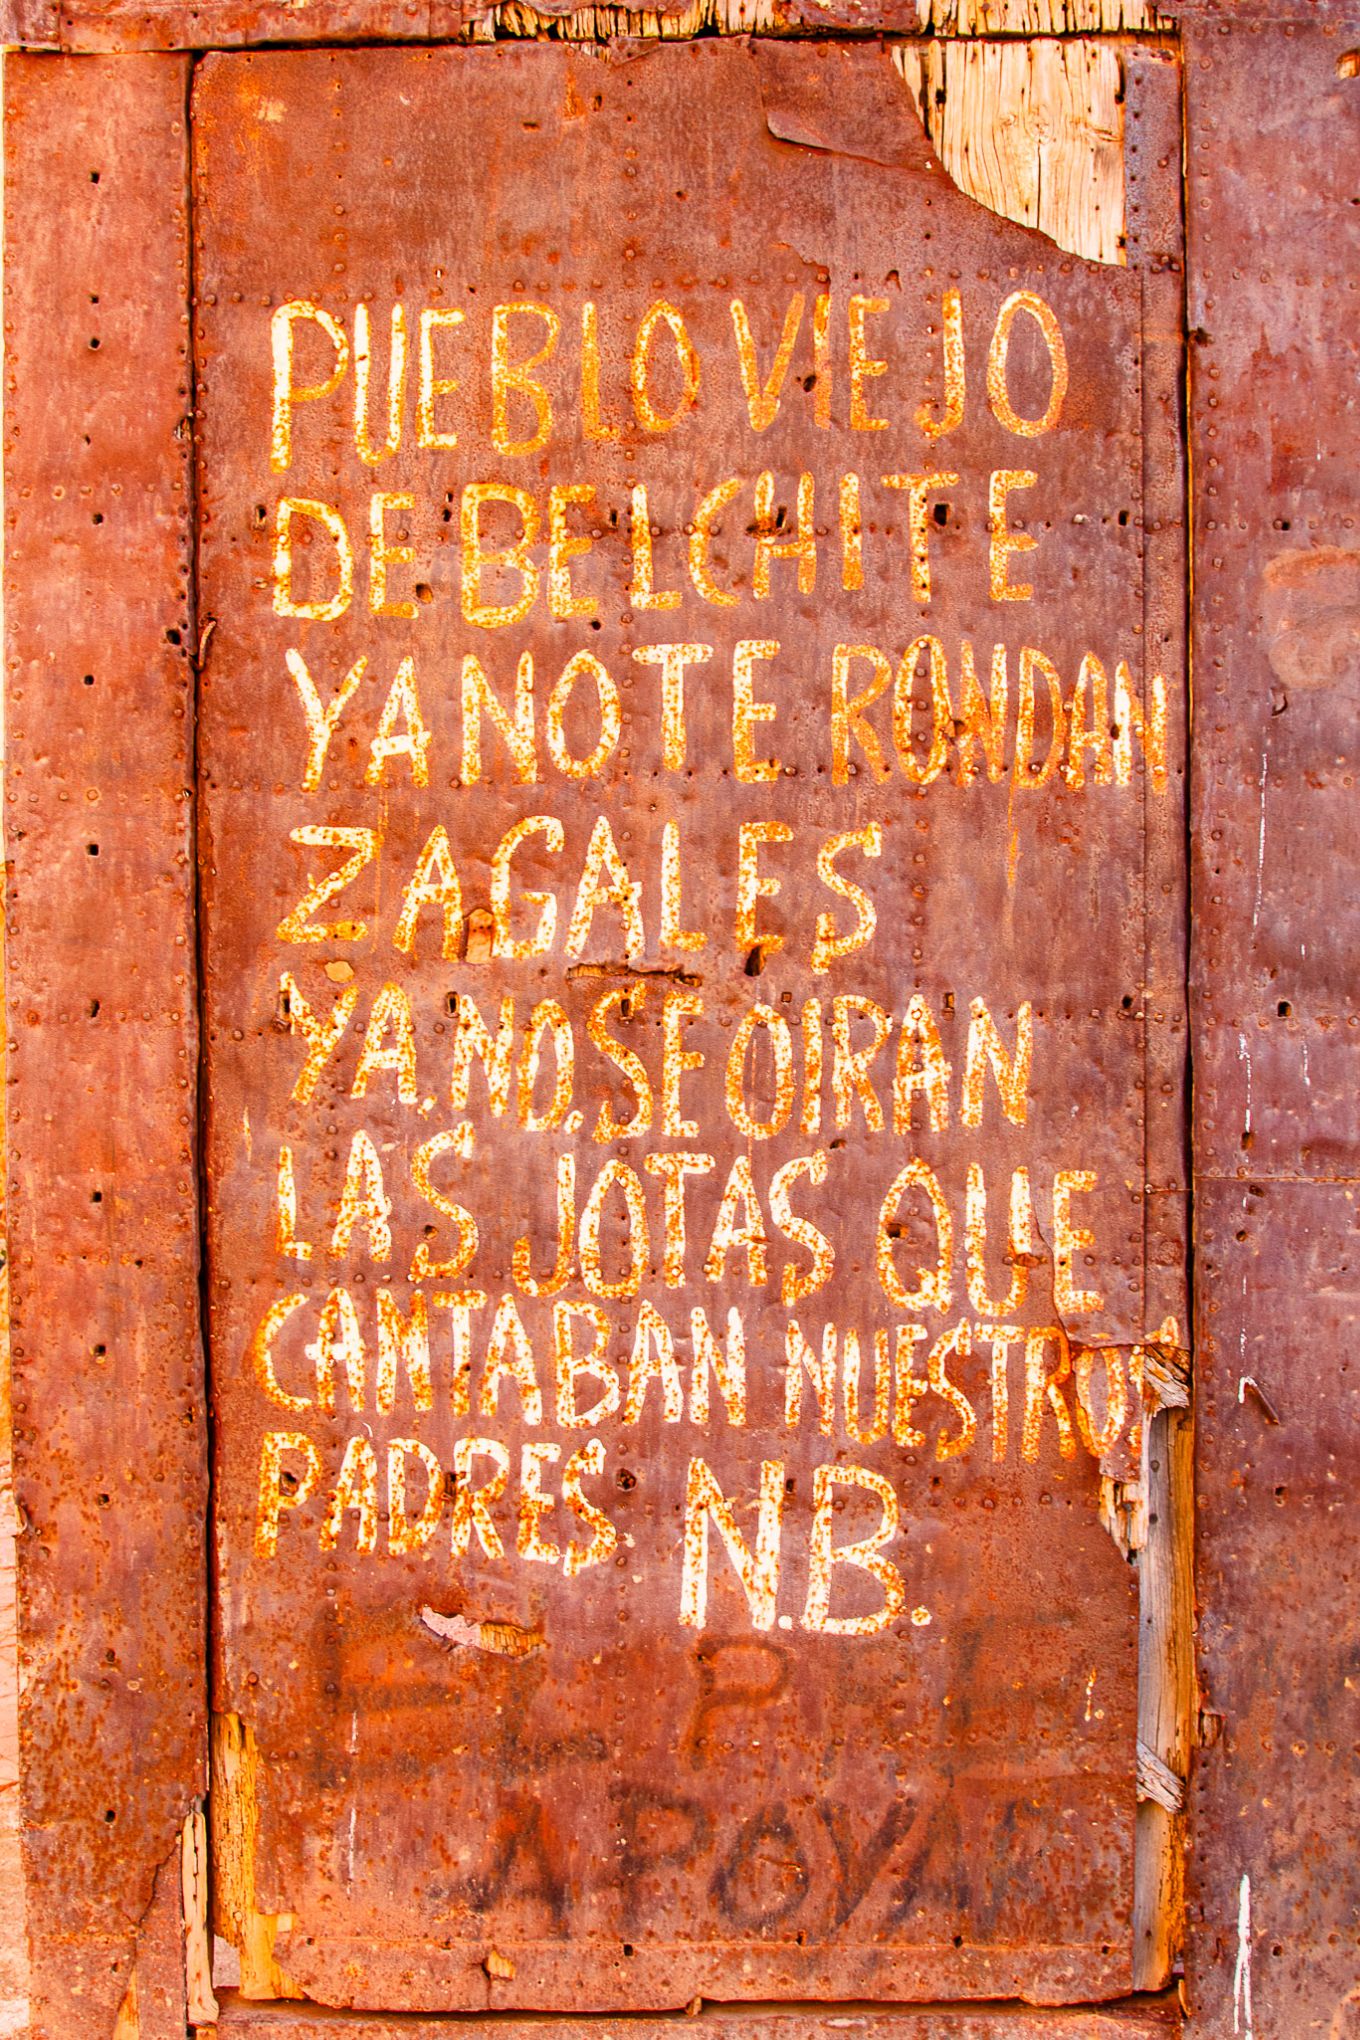 PUEBLO VIEJO
DE BELCHITE
YA NO TE RONDAN
ZAGALES
YA.NO.SE OIRAN
LAS JOTAS QUE
CANTABAN NUESTROS
PADRES N.B.
APOYA